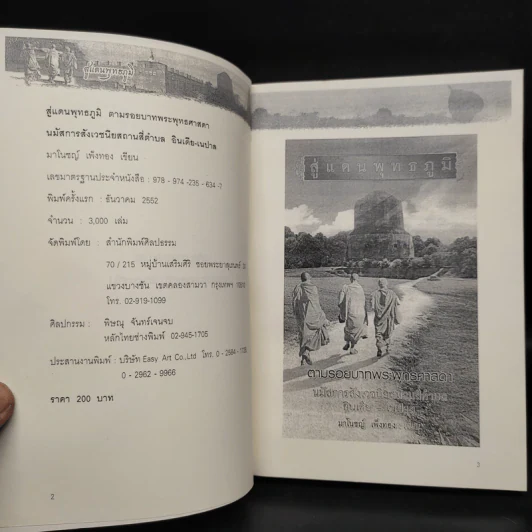 สู่แดนพุทธภูมิ
สู่แดนพุทธภูมิ ตามรอยบาทพระพุทธศาสดา
นมัสการสังเวชนียสถานสี่ตำบล อินเดีย-เนปาล
มาโนชญ์ เพ็งทอง เขียน
เลขมาตรฐานประจำหนังสือ : 978 - 974 -235 - 634 -
พิมพ์ครั้งแรก : ธันวาคม 2552
จำนวน : 3,000 เล่ม
จัดพิมพ์โดย : สำนักพิมพ์ศิลปธรรม
70 / 215 หมู่บ้านเสริมศิริ ซอยพระยาสุเรนทร์
แขวงบางชัน เขตคลองสามวา กรุงเทพฯ
โทร. 02-919-1099
ศิลปกรรม : พิษณุ จันทร์เจนจบ
หลักไทยช่างพิมพ์ 02-945-1705
ประสานงานพิมพ์ : บริษัท Easy Art Co.,Ltd โทร. 0 - 2584 -
0 - 2962 - 9966
ราคา 200 บาท
2
สู่แดนพุทธภูมิ
ตามรอยบาทพระพุทธศาสดา
นมัสการสังเวชนียสถานสี่ตำบล
อินเดีย
มาโนชญ์ เพ็งทอง
3